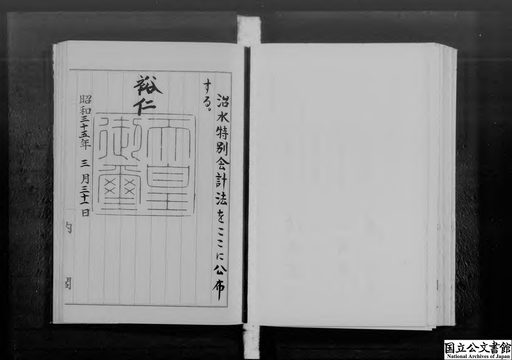 治水特別会計法をここに公布
する。
裕仁
天皇
御璽
昭和三十五年三月三十一日
内閣
国立公文書館
National Archives of Japan